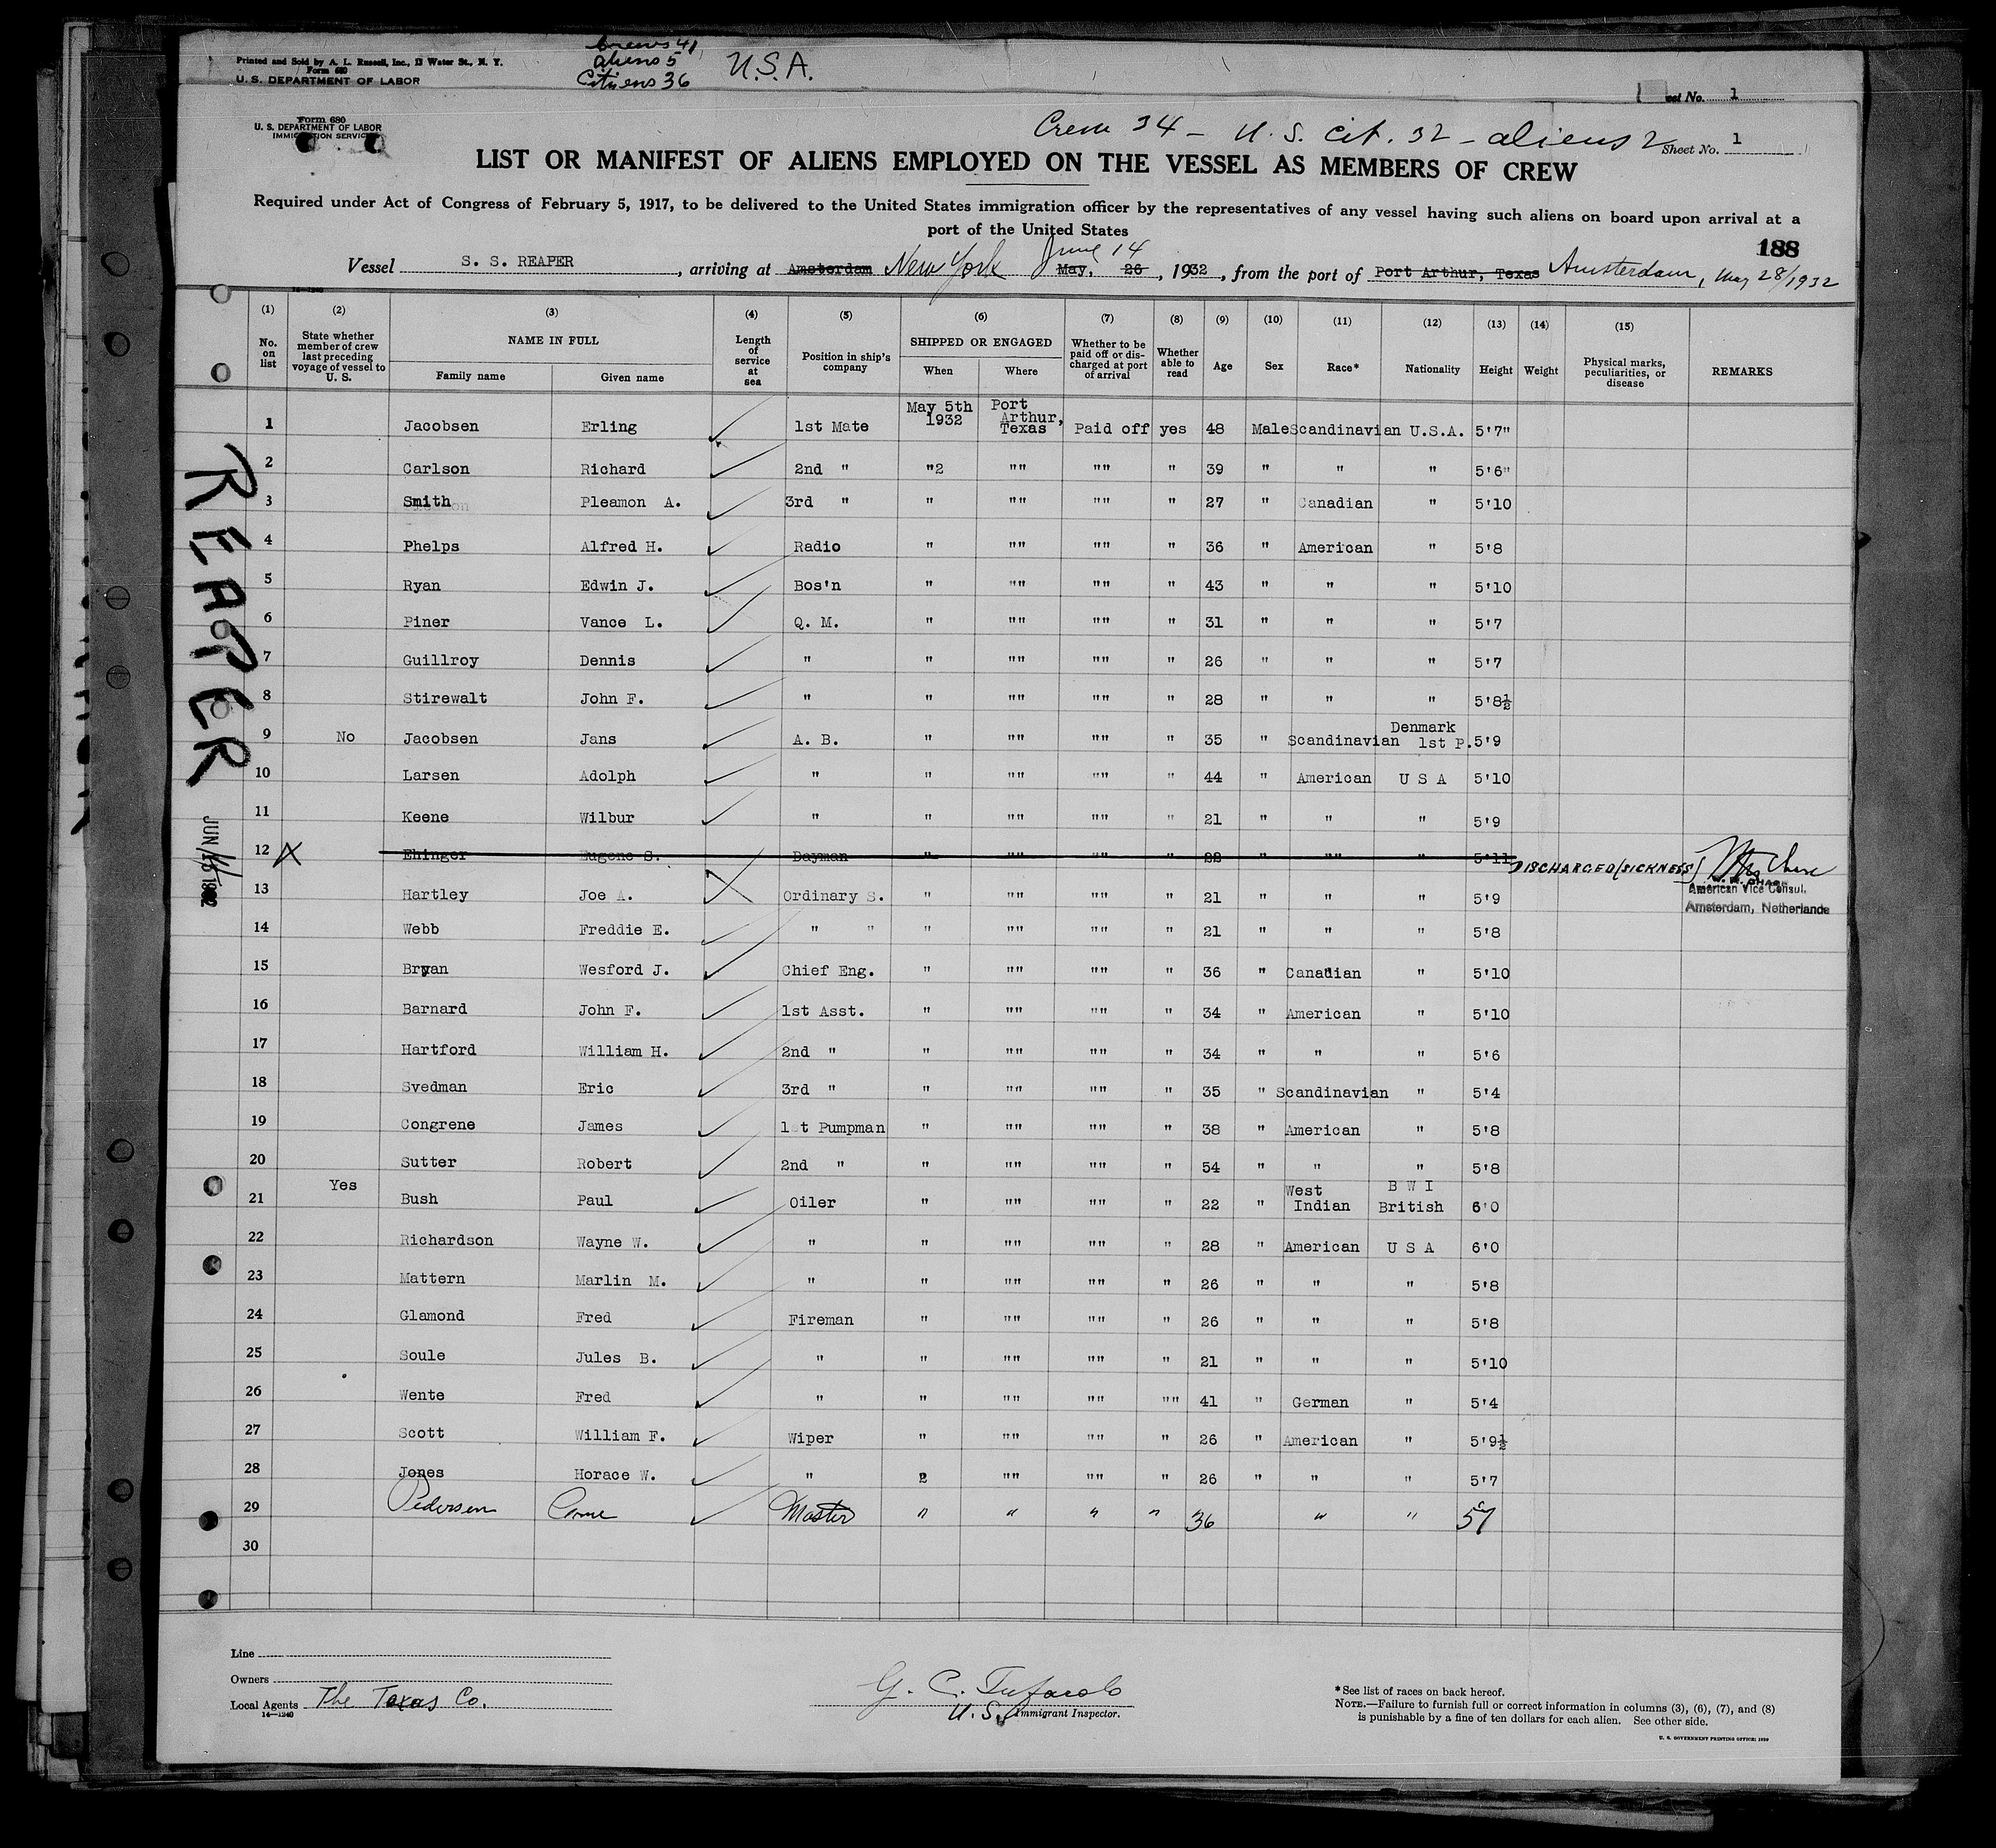 Crews 41
aliens 5
Citizens 36
U.S.A.
Printed and Sold by A. L. Russell, Inc., 13 Water St., N. Y.
Form 680
U. S. DEPARTMENT OF LABOR
No. 1
Form 680
U. S. DEPARTMENT OF LABOR
IMMIGRATION SERVICE
Crew 34 - U. S. cit. 32 - aliens 2
Sheet No. 1
LIST OR MANIFEST OF ALIENS EMPLOYED ON THE VESSEL AS MEMBERS OF CREW
Required under Act of Congress of February 5, 1917, to be delivered to the United States immigration officer by the representatives of any vessel having such aliens on board upon arrival at a
port of the United States
188
Vessel S. S. REAPER, arriving at Amsterdam New York June 14 May, 26, 1932, from the port of Port Arthur, Texas Amsterdam, May 28/1932
(1) (2) (3) (4) (5) (6) (7) (8) (9) (10) (11) (12) (13) (14) (15)
No. on list
State whether member of crew last preceding voyage of vessel to U. S.
NAME IN FULL
Family name
Given name
Length of service at sea
Position in ship's company
SHIPPED OR ENGAGED
When
Where
Whether to be paid off or discharged at port of arrival
Whether able to read
Age
Sex
Race*
Nationality
Height
Weight
Physical marks, peculiarities, or disease
REMARKS
1 Jacobsen Erling 1st Mate May 5th 1932 Port Arthur, Texas Paid off yes 48 Male Scandinavian U.S.A. 5'7"
2 Carlson Richard 2nd " "2 "" "" " 39 " " " 5'6"
3 Smith Pleamon A. 3rd " " "" "" " 27 " Canadian " 5'10
4 Phelps Alfred H. Radio " "" "" " 36 " American " 5'8
5 Ryan Edwin J. Bos'n " "" "" " 43 " " " 5'10
6 Piner Vance L. Q. M. " "" "" " 31 " " " 5'7
7 Guillroy Dennis " " "" "" " 26 " " " 5'7
8 Stirewalt John F. " " "" "" " 28 " " " 5'8½
9 No Jacobsen Jans A. B. " "" "" " 35 " Scandinavian Denmark 1st P. 5'9
10 Larsen Adolph " " "" "" " 44 " American U S A 5'10
11 Keene Wilbur " " "" "" " 21 " " " 5'9
12 X Ehinger Eugene S. Dayman " "" "" " 22 " "" " 5'11 DISCHARGED (SICKNESS)
American Vice Consul.
Amsterdam, Netherlands
13 Hartley Joe A. Ordinary S. " "" "" " 21 " " " 5'9
14 Webb Freddie E. " " " "" "" " 21 " " " 5'8
15 Bryan Wesford J. Chief Eng. " "" "" " 36 " Canadian " 5'10
16 Barnard John F. 1st Asst. " "" "" " 34 " American " 5'10
17 Hartford William H. 2nd " " "" "" " 34 " " " 5'6
18 Svedman Eric 3rd " " "" "" " 35 " Scandinavian " 5'4
19 Congrene James 1st Pumpman " "" "" " 38 " American " 5'8
20 Sutter Robert 2nd " " "" "" " 54 " " " 5'8
21 Yes Bush Paul Oiler " "" "" " 22 " West Indian B W I British 6'0
22 Richardson Wayne W. " " "" "" " 28 " American U S A 6'0
23 Mattern Marlin M. " " "" "" " 26 " " " 5'8
24 Glamond Fred Fireman " "" "" " 26 " " " 5'8
25 Soule Jules B. " " "" "" " 21 " " " 5'10
26 Wente Fred " " "" "" "" 41 " German " 5'4
27 Scott William F. Wiper " "" "" " 26 " American " 5'9½
28 Jones Horace W. " 2 "" "" " 26 " " " 5'7
29 Pedersen Master " " " " 36 " " 5'7
30
REAPER
JUN 14 1932
Line
Owners
Local Agents The Texas Co.
14—1240
G. C. Tufarolo
U. S. Immigrant Inspector.
*See list of races on back hereof.
NOTE.—Failure to furnish full or correct information in columns (3), (6), (7), and (8)
is punishable by a fine of ten dollars for each alien. See other side.
U. S. GOVERNMENT PRINTING OFFICE: 1930